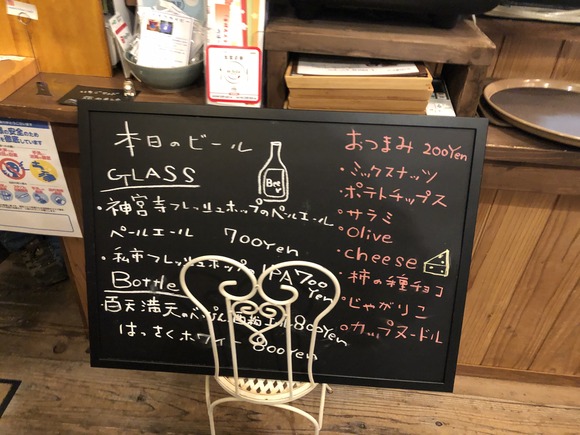 本日のビール
GLASS
・神宮寺フレッシュホップのペールエール
ペールエール 700yen
・私市フレッシュホップ IPA 700yen
Bottle
・百天満天のべっぴん 800yen
はっさくホワイト 800yen
Beer
おつまみ 200yen
・ミックスナッツ
・ポテトチップス
・サラミ
・Olive
・cheese
・柿の種チョコ
・じゃがりこ
・カップヌードル